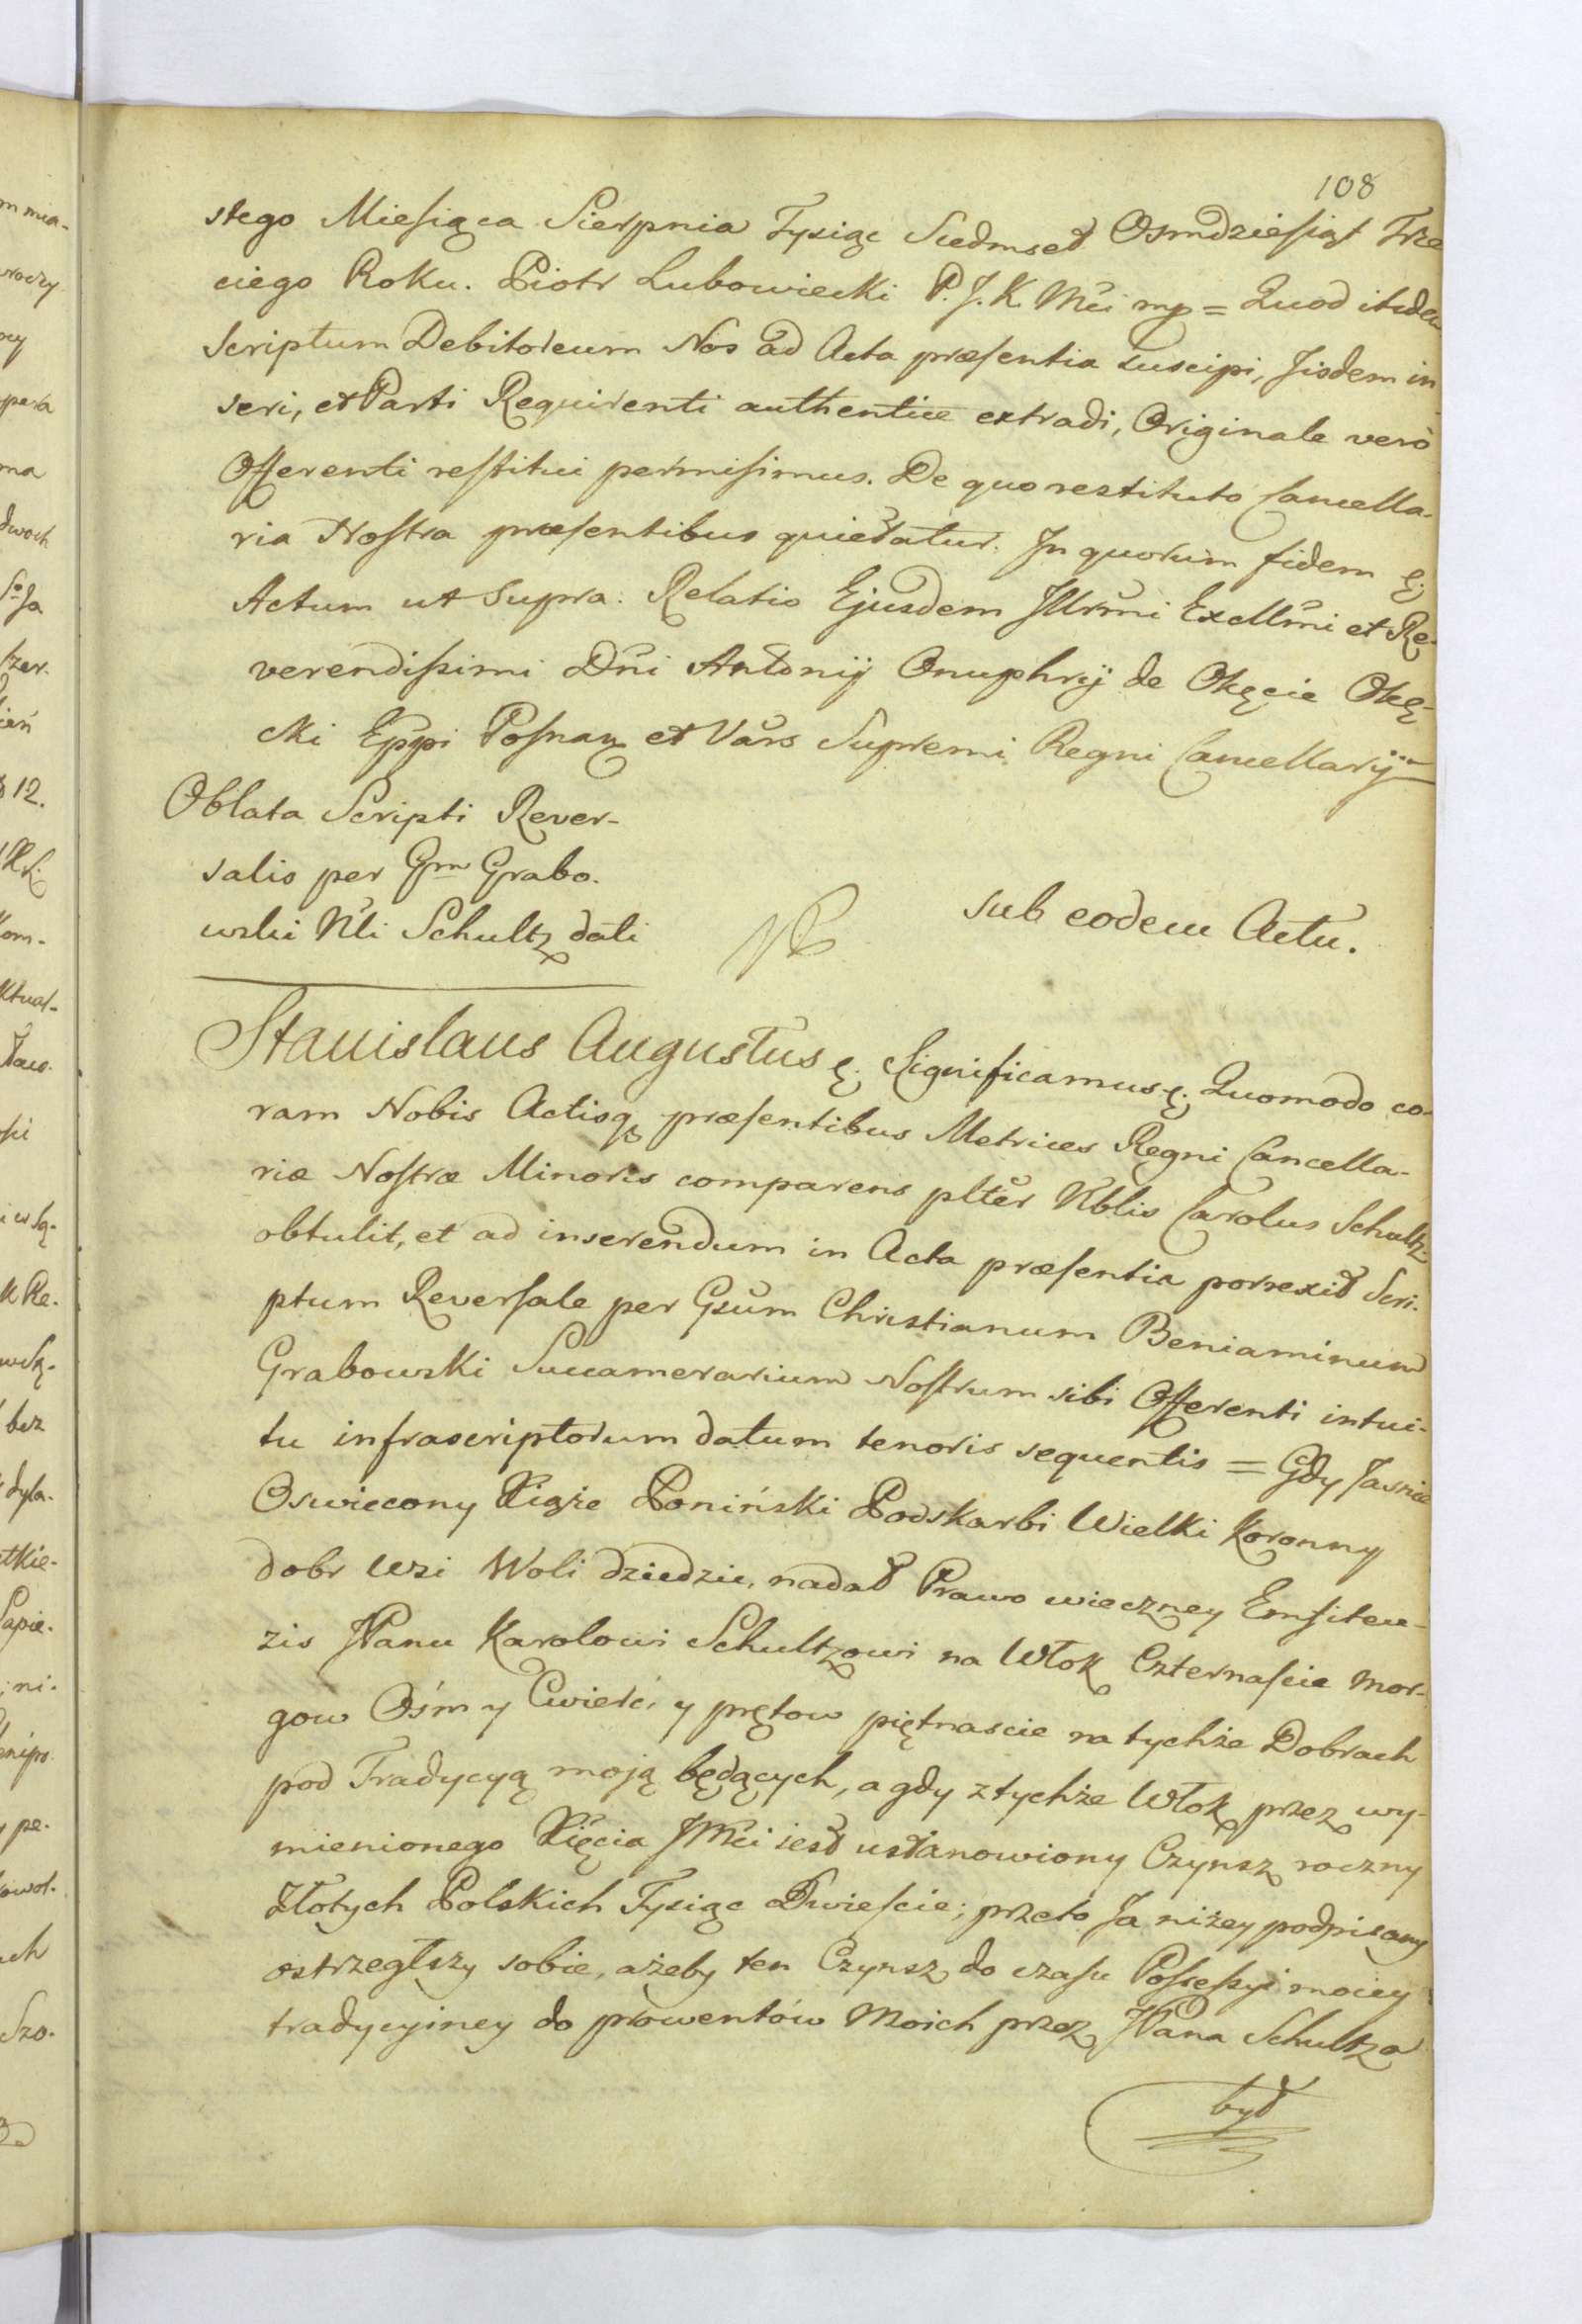 108
stego Miesiąca Sierpnia Tysiąc Siedmset Osmdziesiąt Trze
ciego Roku. Piotr Lubowiecki P.J.K. Mci mp = Quod itidem
Scriptum Debitoreum Nos ad Acta præsentia suscipi, Jisdem in-
seri, et Parti Requirenti authentice extradi, Originale verò
Offerenti restitui permisimus. De quo restituto Cancella-
ria Nostra præsentibus quietatur. In quorum fidem &.
Actum ut supra. Relatio Ejusdem Illrmi Excellmi et Re-
verendissimi Dni Antonij Onuphrij de Okęcie Okę-
cki Eppi Posnan et Vars Supremi Regni Cancellarij
Oblata Scripti Rever-
salis per Gm Grabo-
wski Nli Schultz dati
sub eodem Actu.
Stanislaus Augustus &. Significamus &. Quomodo co-
ram Nobis Actisq præsentibus Metrices Regni Cancella-
riæ Nostræ Minoris comparens plter Nblis Carolus Schultz
obtulit, et ad inserendum in Acta præsentia porrexit Scri-
ptum Reversale per Gsum Christianum Beniaminum
Grabowski Succamerarium Nostrum sibi Offerenti intui-
tu infrascriptorum datum tenoris sequentis = Gdy Jasnie
Oswiecony Xiąże Poninski Podskarbi Wielki Koronny
dobr wsi Woli dziedzic, nadał Prawo wieczney Emfiteu-
zis JPanu Karolowi Schultzowi na Włok Czternascie mor-
gow Ośm y Cwierć, y prętow piętnascie na tychże Dobrach
pod Tradycyą moją będących, a gdy z tychże Włok przez wy-
mienionego Xięcia JMci iest ustanowiony Czynsz roczny
Złotych Polskich Tysiąc Dwiescie; przeto Ja niżey podpisany
ostrzegłszy sobie, ażeby ten Czynsz do czasu Possessyi moiey
tradycyiney do prowentów moich przez JPana Schultza
był